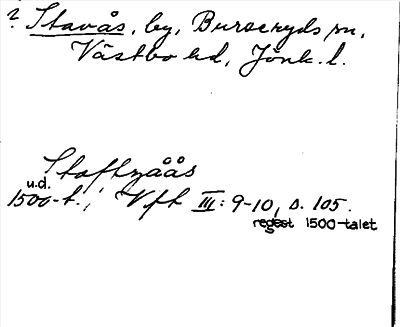 ? Stavås, by, Burseryds sn,
Västbo hd, Jönk. l.
Staffzåås
u.d.
1500-t.; Vft III: 9-10, s. 105.
regest 1500-talet